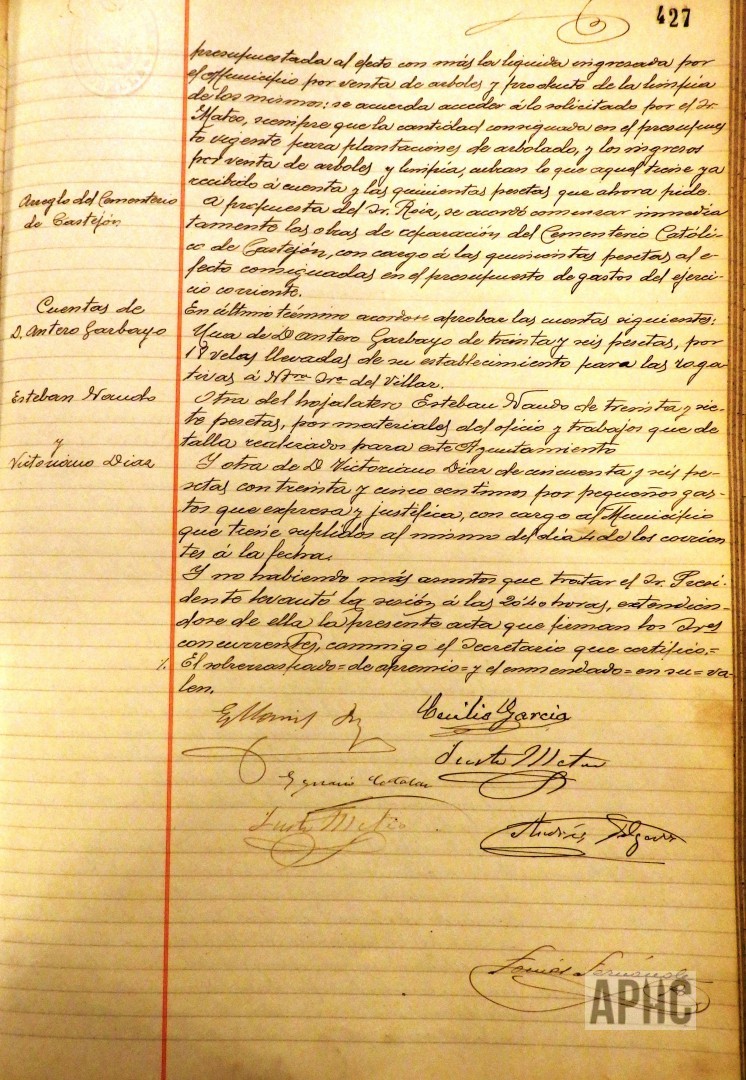 427
presupuestada al efecto con más la líquida ingresada por
el Municipio por venta de arboles y producto de la limpia
de los mismos: se acuerda acceder á lo solicitado por el Sr.
Mateo, siempre que la cantidad consignada en el presupues
to vigente para plantaciones de arbolado, y los ingresos
por venta de arboles y limpia, cubran lo que aquel tiene ya
recibido á cuenta y las quinientas pesetas que ahora pide.
Arreglo del Cementerio
de Castejón
A propuesta del Sr. Roiz, se acordó comenzar inmedia
tamente las obras de reparación del Cementerio Católi
co de Castejón, con cargo á las quinientas pesetas al e-
fecto consignadas en el presupuesto de gastos del ejerci-
cio corriente.
Cuentas de
D. Antero Garbayo
En último término acordose aprobar las cuentas siguientes:
Una de D Antero Garbayo de treinta y seis pesetas, por
18 velas llevadas de su establecimiento para las roga
tivas á Ntra Sra del Villar.
Esteban Naudo
y
Victoriano Diaz
Otra del hojalatero Esteban Naudo de treinta y sie-
te pesetas, por materiales del oficio y trabajos que de
talla realizados para este Ayuntamiento
Y otra de D Victoriano Diaz de cincuenta y seis pe-
setas con treinta y cinco centimos por pequeños gas-
tos que expresa y justifica, con cargo al Municipio
que tiene suplidos al mismo del día 4 de los corrien-
tes á la fecha.
Y no habiendo más asuntos que tratar el Sr. Presi-
dente levantó la sesión á las 20'40 horas, extendien-
dose de ella la presente acta que firman los Sres
concurrentes, conmigo el Secretario que certifico.=
El sobrerraspado=de apremio=y el enmendado=en su=va-
len.
Cecilio Garcia
Justo Mateo
Justo Mateo
Andrés
APHC